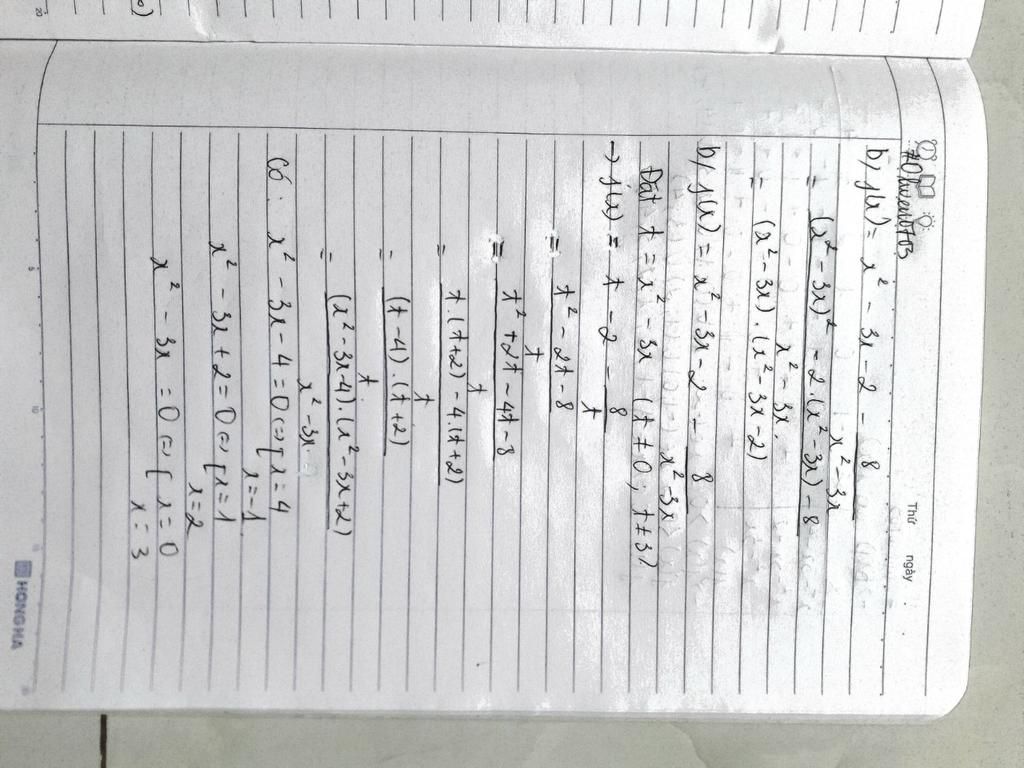 Thứ ngày
#Olwen8TO3
b, f(x) = x² - 3x - 2 - 8/(x² - 3x)
= ((x² - 3x)² - 2.(x² - 3x) - 8)/(x² - 3x)
= (x² - 3x).(x² - 3x - 2)
b, f(x) = x² - 3x - 2 - 8/(x² - 3x)
Đặt t = x² - 3x (t ≠ 0; t ≠ 3)
→ f(x) = t - 2 - 8/t
= (t² - 2t - 8)/t
= (t² + 2t - 4t - 8)/t
= (t.(t+2) - 4.(t+2))/t
= ((t - 4).(t + 2))/t
= ((x² - 3x - 4).(x² - 3x + 2))/(x² - 3x)
Có: x² - 3x - 4 = 0 ⇔ [x = 4
x = -1
x² - 3x + 2 = 0 ⇔ [x = 1
x = 2
x² - 3x = 0 ⇔ [x = 0
x = 3
HONG HA